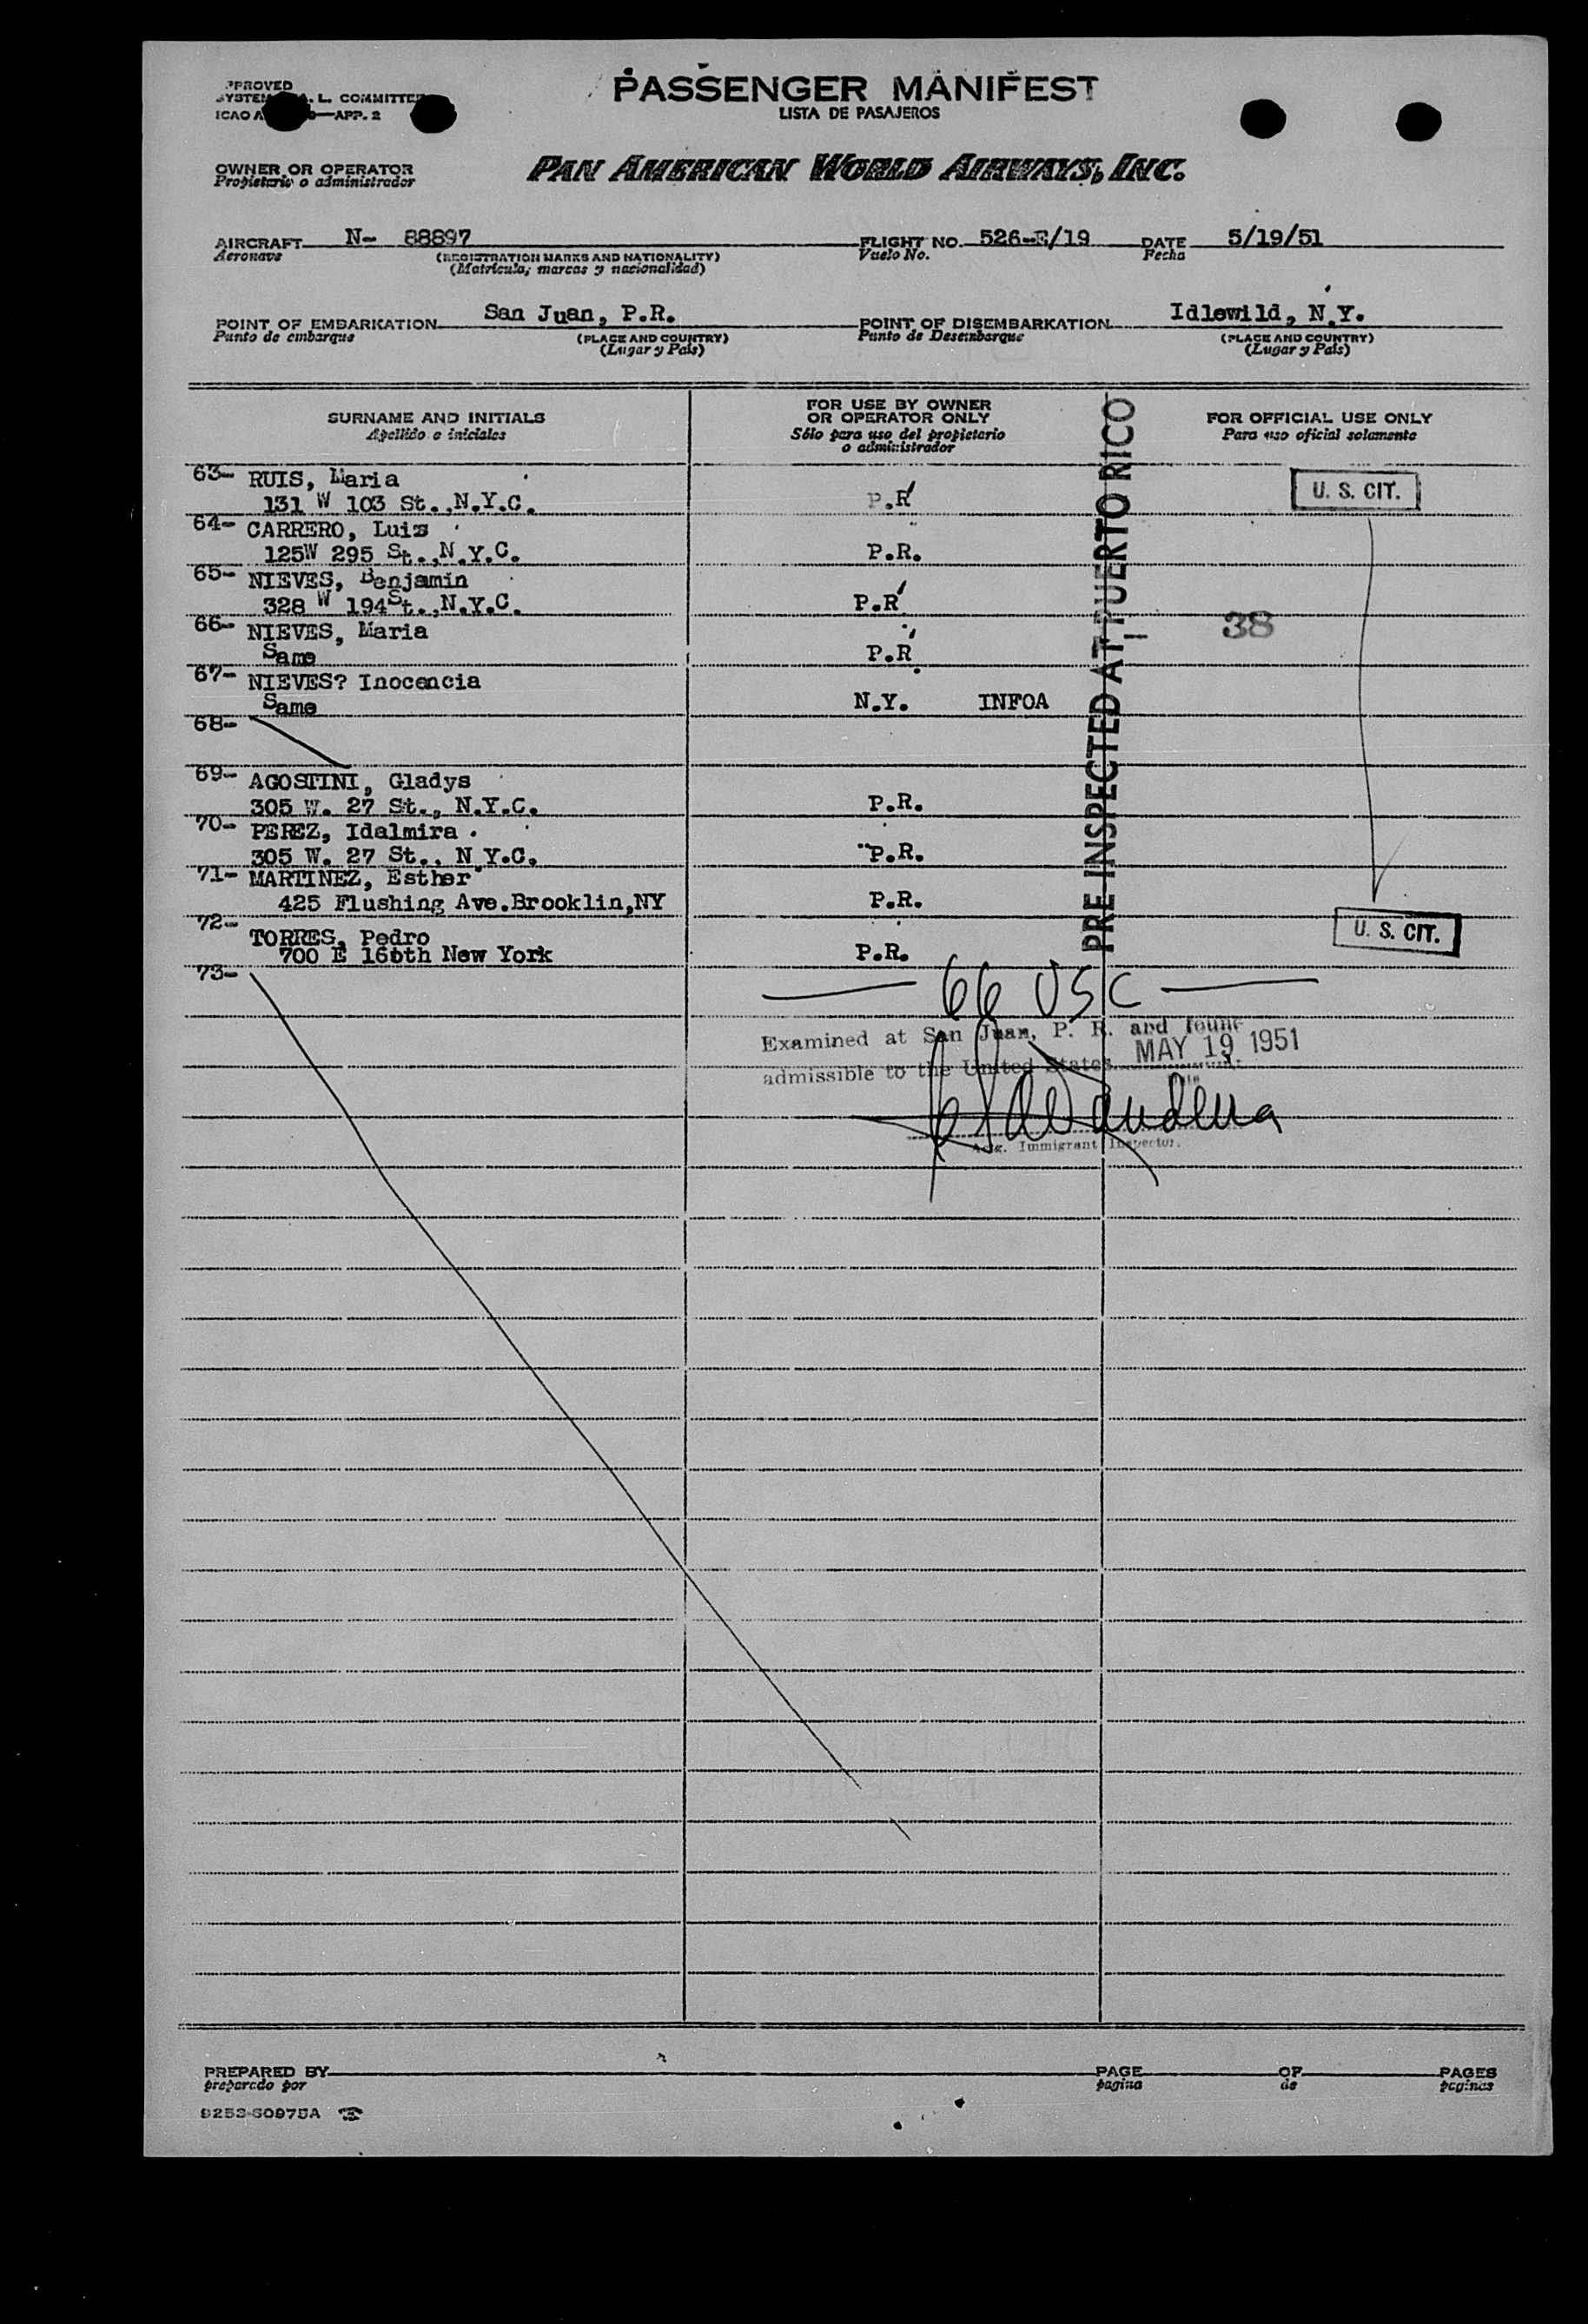 PASSENGER MANIFEST
LISTA DE PASAJEROS
L. COMMITTEE
ICAO
APP. 2
OWNER OR OPERATOR
Propietario o administrador
PAN AMERICAN WORLD AIRWAYS, INC.
AIRCRAFT N- 88897 FLIGHT NO. 526-E/19 DATE 5/19/51
Aeronave (REGISTRATION MARKS AND NATIONALITY) Vuelo No. Fecha
(Matrícula, marcas y nacionalidad)
POINT OF EMBARKATION San Juan, P.R. POINT OF DISEMBARKATION Idlewild, N.Y.
Punto de embarque (PLACE AND COUNTRY) Punto de Desembarque (PLACE AND COUNTRY)
(Lugar y País) (Lugar y País)
SURNAME AND INITIALS FOR USE BY OWNER OR OPERATOR ONLY FOR OFFICIAL USE ONLY
Apellido e iniciales Sólo para uso del propietario o administrador Para uso oficial solamente
PRE-INSPECTED AT PUERTO RICO
63- RUIS, Maria
131 W 103 St.,N.Y.C. P.R U. S. CIT.
64- CARRERO, Luis
125W 295 St.,N.Y.C. P.R.
65- NIEVES, Benjamin
328 W 194St.,N.Y.C. P.R
66- NIEVES, Maria 38
Same P.R.
67- NIEVES? Inocencia
Same N.Y. INFOA
68-
69- AGOSTINI, Gladys
305 W. 27 St., N.Y.C. P.R.
70- PEREZ, Idalmira
305 W. 27 St., N.Y.C. P.R.
71- MARTINEZ, Esther
425 Flushing Ave.Brooklin,NY P.R.
72- TORRES, Pedro U. S. CIT.
700 E 166th New York P.R.
73-
66 USC
Examined at San Juan, P. R. and found
admissible to the United States MAY 19 1951
Actg. Immigrant Inspector.
PREPARED BY PAGE OF PAGES
preparado por pagina de paginas